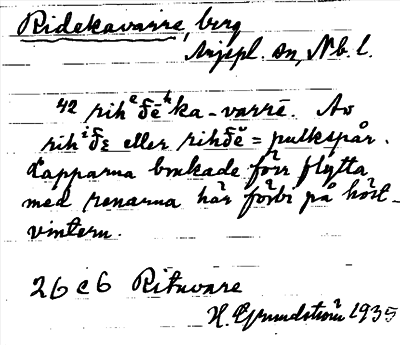 Ridekavarre, berg
Arjepl. sn, Nb. l.
42 rihᵉδēʰka-varrē. Av
rihⁱδε eller rihδĕ = pulkspår.
Lapparna brukade förr flytta
med renarna här förbi på höst-
vintern.
26 c 6 Rituvare
H. Grundström 1935